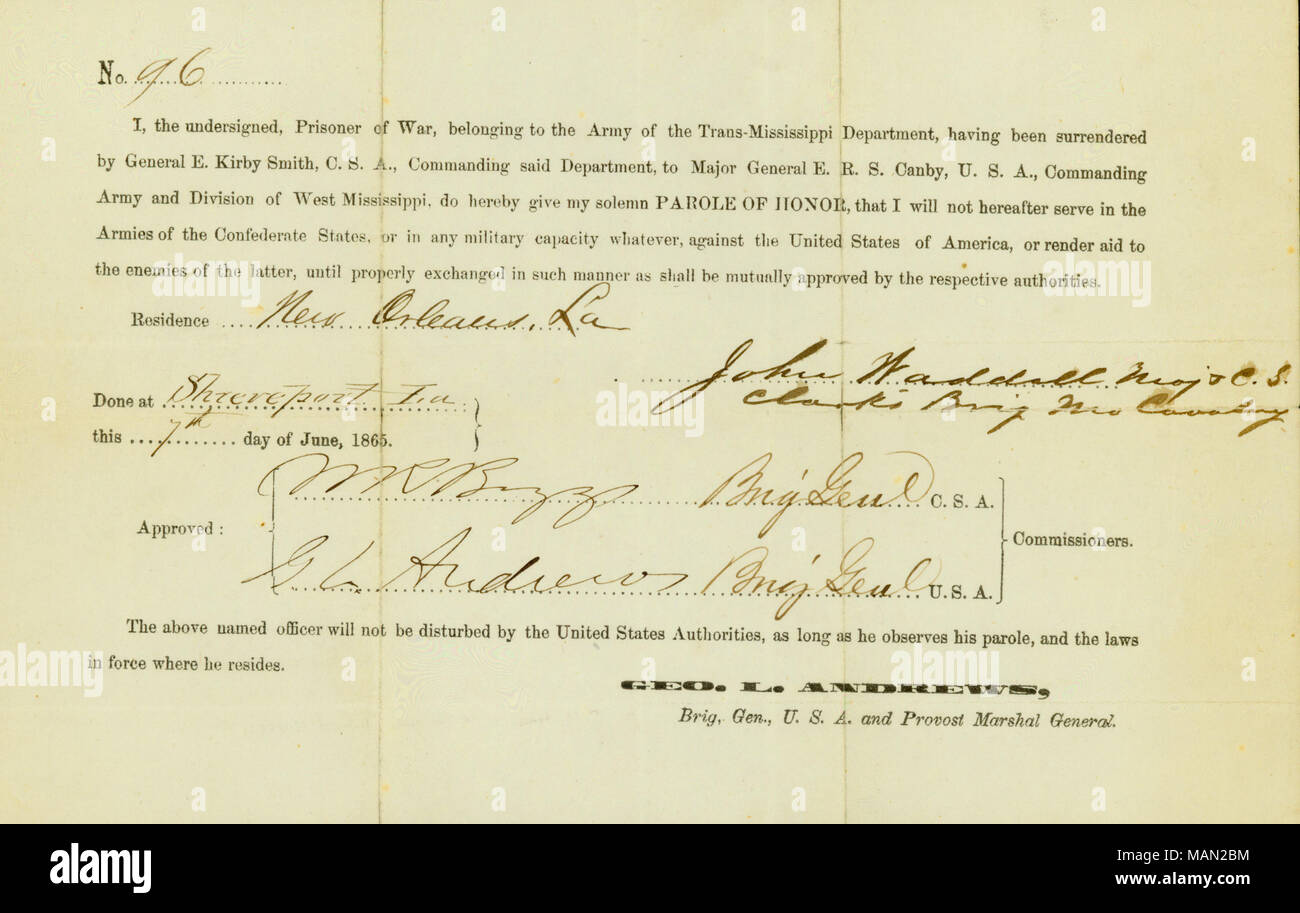 No. 96
I, the undersigned, Prisoner of War, belonging to the Army of the Trans-Mississippi Department, having been surrendered
by General E. Kirby Smith, C. S. A., Commanding said Department, to Major General E. R. S. Canby, U. S. A., Commanding
Army and Division of West Mississippi, do hereby give my solemn PAROLE OF HONOR, that I will not hereafter serve in the
Armies of the Confederate States, or in any military capacity whatever, against the United States of America, or render aid to
the enemies of the latter, until properly exchanged in such manner as shall be mutually approved by the respective authorities.
Residence New Orleans, La
John Waddell Maj & C. S.
Clark's Brig Mo Cavalry
Done at Shreveport La.
this 7th day of June, 1865.
W R Boggs Brig Genl C. S. A.
Approved : Commissioners.
G L Andrews Brig Genl U. S. A.
The above named officer will not be disturbed by the United States Authorities, as long as he observes his parole, and the laws
in force where he resides.
GEO. L. ANDREWS,
Brig. Gen., U. S. A. and Provost Marshal General.
alamy
Image ID: MAN2BM
www.alamy.com